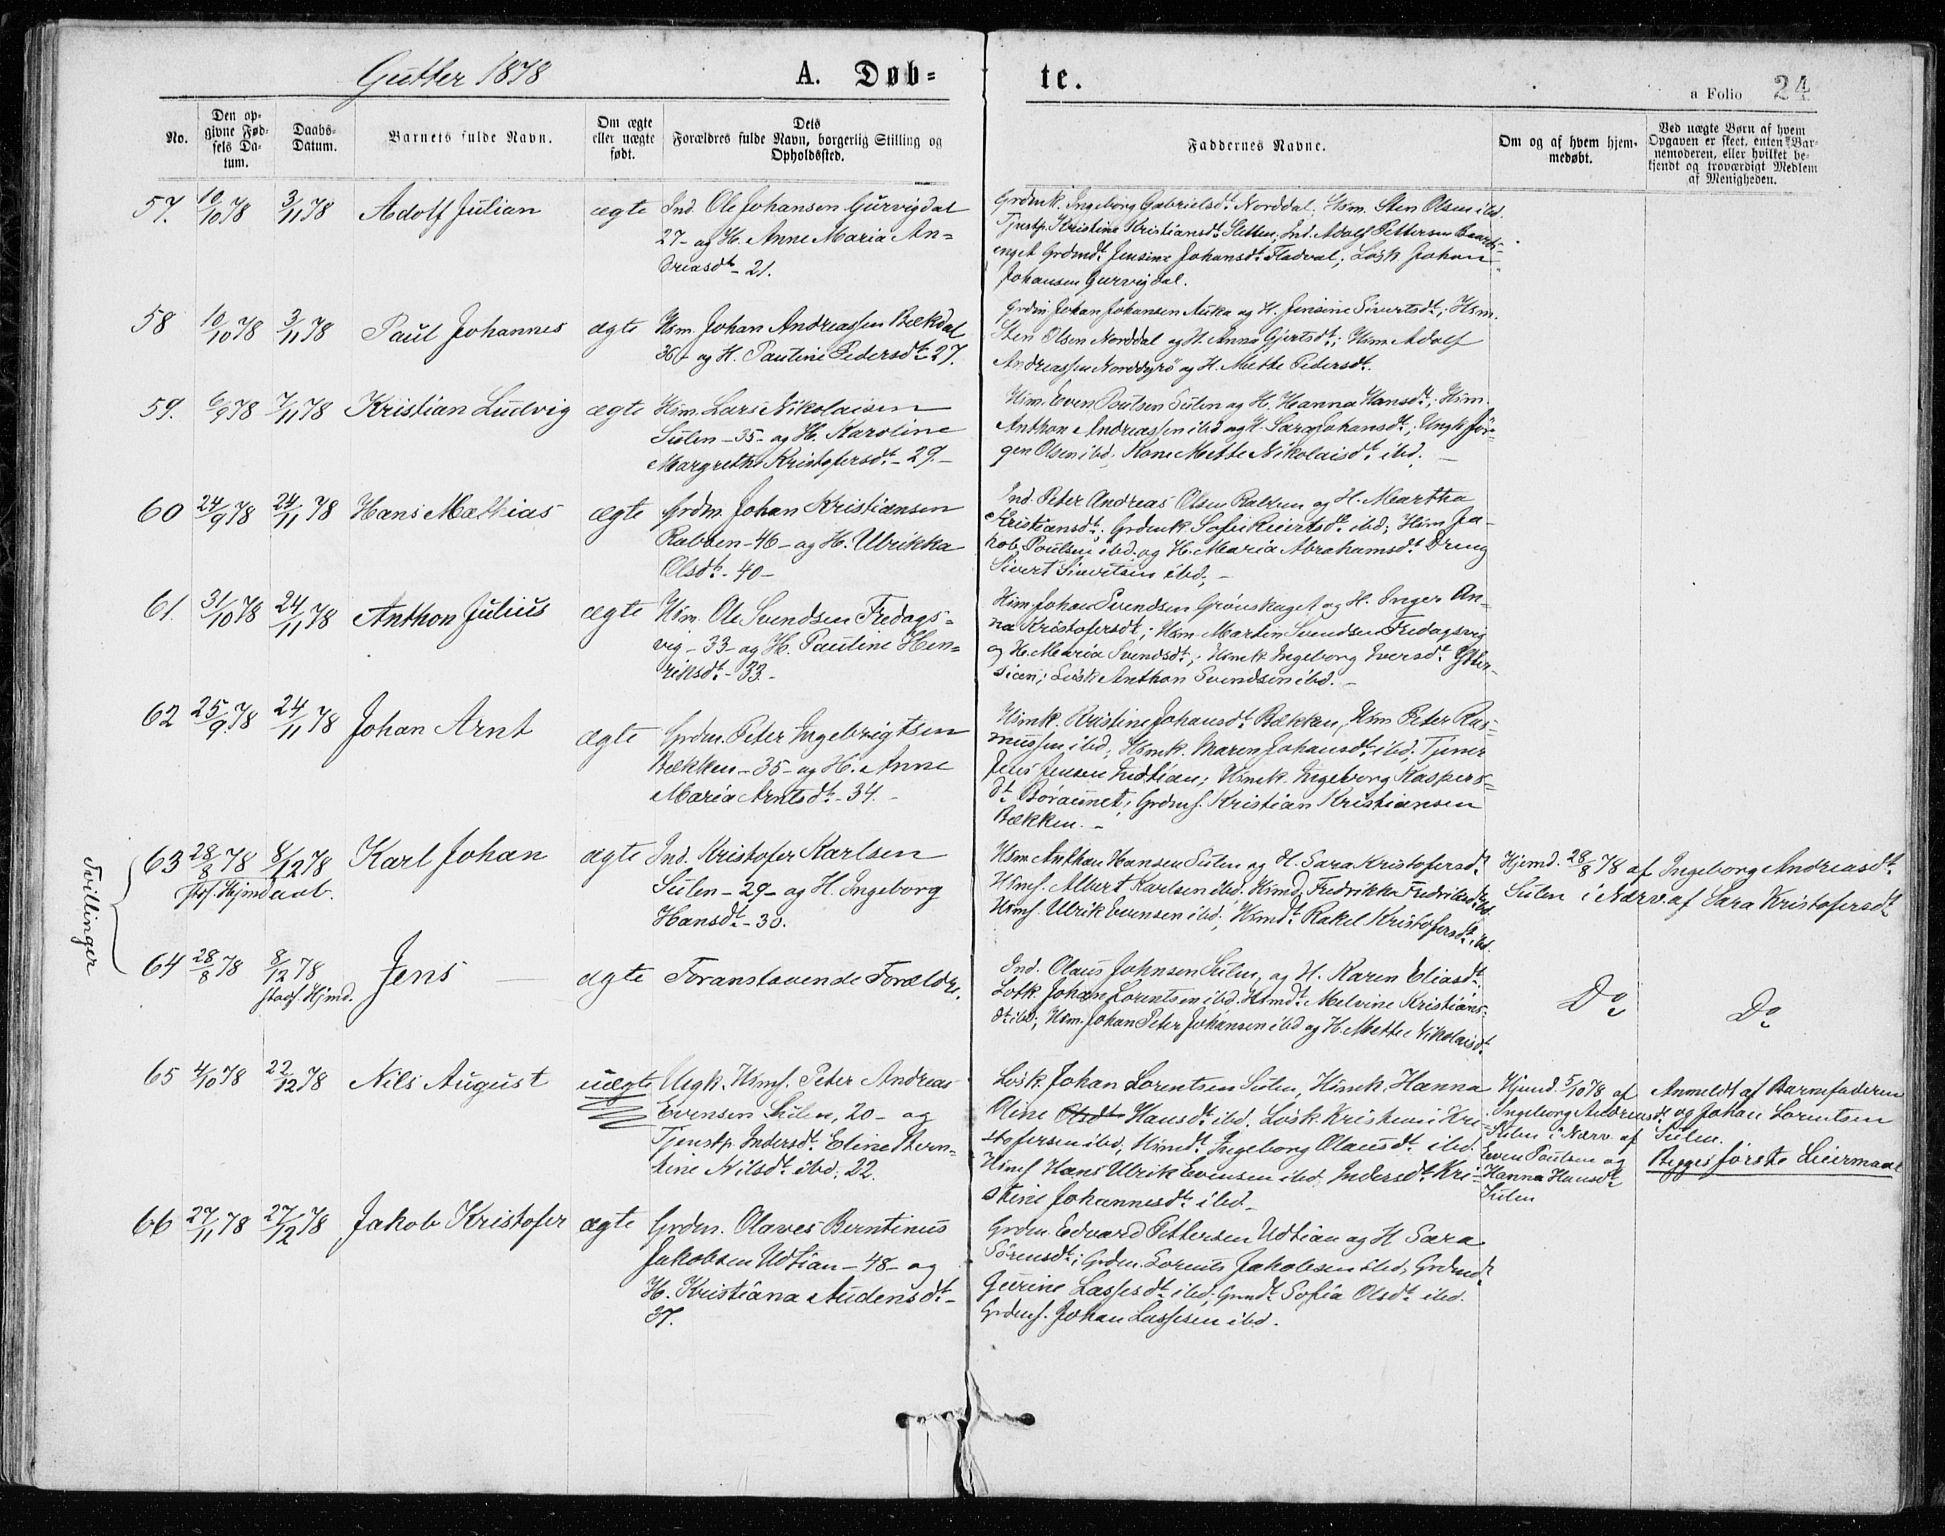 Gutter 1878
A. Døb-
te.
a Folio 24
No.
Den op-
givne Fød-
sels Da-
tum.
Daabs-
Datum.
Barnets fulde Navn.
Om ægte
eller uægte
født.
Dets
Forældres fulde Navn, borgerlig Stilling og
Opholdssted.
Faddernes Navne.
Om og af hvem hjem-
medøbt.
Ved uægte Børn af hvem
Opgaven er skeet, enten Bar-
nemoderen, eller hvilket be-
kjendt og troværdigt Medlem
af Menigheden.
57. 10/10 78 3/11 78 Adolf Julian ægte Ind. Ole Johansen Gurvigdal
27- og H. Anne Maria An-
driasdt - 21.
Grdmk. Ingeborg Gabrielsdt Norddal; Hsm. Sten Olsen ibd.
Tjnstp. Kristine Kristiansdt Sletten; Ind. Adolf Pettersen
enget Grdmdt Jensine Johansdt Fladval; Løsk Johan
Johansen Gurvigdal.
58 10/10 78 3/11 78 Paul Johannes ægte Hsm. Johan Andreassen Bekdal
36- og H. Pauline Pedersdt 27.
Grdm Johan Johansen Auka og H. Jensine Sivertsdt; Hsm.
Sten Olsen Norddal og H. Anna Gjertsdt; Hsm Adolf
Andreassen Norddyrö og H. Mette Pedersdt.
59. 6/9 78 7/11 78 Kristian Ludvig ægte Hsm. Lars Nikolaisen
Sulen - 35- og H. Karoline
Margrethe Kristofersdt - 29.-
Hsm. Even Poulsen Sulen og H. Hanna Hansdt; Hsm.
Anthon Andreassen ibd og H. Sara Johansdt; Ungk Jör-
gen Olsen ibd; Kone Mette Nikolaisdt ibd. -
60 24/9 78 24/11 78 Hans Mathias ægte Grdm. Johan Kristiansen
Rabben - 46 - og H. Ulrikka
Olsdt - 40 -
Ind. Peter Andreas Olsen Rabben og H. Martha
Kristiansdt; Grdmk Sofie Reiertsdt ibd; Hsm Ja-
kob Poulsen ibd. og H. Maria Abrahamsdt Dreng
Sivert Sivertsen ibd; -
61. 31/10 78 24/11 78 Anthon Julius ægte Hsm. Ole Svendsen Fredags-
vig - 33 - og H. Pauline Hen-
riksdt - 33. -
Hsm Johan Svendsen Grönskaget og H. Inger An-
na Kristofersdt; Hsm Martin Svendsen Fredagsvig
og H. Maria Svendsdt; Hsmk Ingeborg Iversdt Ytter-
sien; Løsk Anthon Svendsen ibd. -
62 25/9 78 24/11 78 Johan Arnt ægte Grdm. Peter Ingebrigtsen
Bækken - 35 - og H. Anne
Maria Arntsdt - 34. -
Hsmk. Kristine Johansdt Bækken, Hsm Peter Ras-
mussen ibd; Hsmk. Maren Johansdt ibd; Tjener
Jens Jensen Udtian; Hsmk. Ingeborg Kaspers-
dt Böraunet; Grdmf. Kristian Kristiansen
Bækken. -
Tvillinger
63 28/8 78 8/12 78 Karl Johan ægte Ind. Kristofer Karlsen
Stdf. Hjmdaab.
Sulen - 29 - og H. Ingeborg
Hansdt - 30.
Hsm Anthon Hansen Sulen og H. Sara Kristofersdt
Hsmf. Albert Karlsen ibd. Hsmd Fredrikka Fredriksdt ibd.
Hsmf. Ulrik Evensen ibd; Hsmdt Rakel Kristofersdt ibd
Hjemd. 28/8 78 af Ingeborg Andreasdt
Sulen i Nærv. af Sara Kristofersdt
64 28/8 78 8/12 78 Jens ægte Foranstaaende Forældre.
stadf. Hjmd.
Ind. Olaus Johnsen Sulen, og H. Karen Eliasdt.
Løsk. Johan Lorentsen ibd. Hsmdt Melvine Kristians-
dt ibd; Hsm. Johan Peter Johansen ibd og H. Mette Nikolaisdt
Do
Do
65 4/10 78 22/12 78 Nils August uægte Ungk. Hsmf. Peter Andreas
Evensen Sulen, 20 - og
Tjenstp. Indersdt. Eline Bern-
tine Nilsdt ibd: 22.
Løsk. Johan Lorentsen Sulen, Hsmk. Hanna
Oline Olsdt Hansdt ibd. Løsk. Kristian Kri-
stofersen ibd; Hsmdt Ingeborg Olausdt ibd.
Hsmf Hans Ulrik Evensen ibd, Indersdt Kri-
stine Johannesdt ibd -
Hjemd. 5/10 78 af
Ingeborg Andreasdt
Sulen i Nærv. af
Even Poulsen og
Hanna Hansdt
Sulen
Anmeldt af Barnefaderen
og Johan Lorentsen
Sulen.
Begges første Leiermaal
66 27/11 78 27/12 78 Jakob Kristofer ægte Grdm. Olaves Berntinus
Jakobsen Udtian - 48 - og
H. Kristiana Audensdt -
37.
Grdm. Edvard Pettersen Udtian og H Sara
Sörensdt; Grdm. Lorents Jakobsen ibd, Grdmdt
Gurine Lassesdt ibd; Grmdt Sofia Olsdt ibd.
Grdmf. Johan Lassesen ibd.